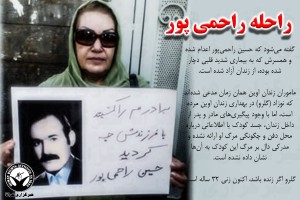 راحله راحمی پور
گفته می‌شود که حسین راحمی‌پور اعدام شده
و همسرش که به بیماری شدید قلبی دچار
شده بوده، از زندان آزاد شده است.
ماموران زندان اوین همان زمان مدعی شدند
که نوزاد (گلرو) در بهداری زندان اوین مرده
است، اما با وجود پیگیری‌های مادر و پدر از
داخل زندان، جسد کودک یا اطلاعاتی درباره
محل دفن و چگونگی مرگ او ارائه نشده و
مدرکی دال بر مرگ این کودک به آن‌ها
نشان داده نشده است.
گلرو اگر زنده باشد، اکنون زنی ۳۲ ساله است
برادرم را کشتید
با فرزندش چه
کردید
حسین راحمی پور